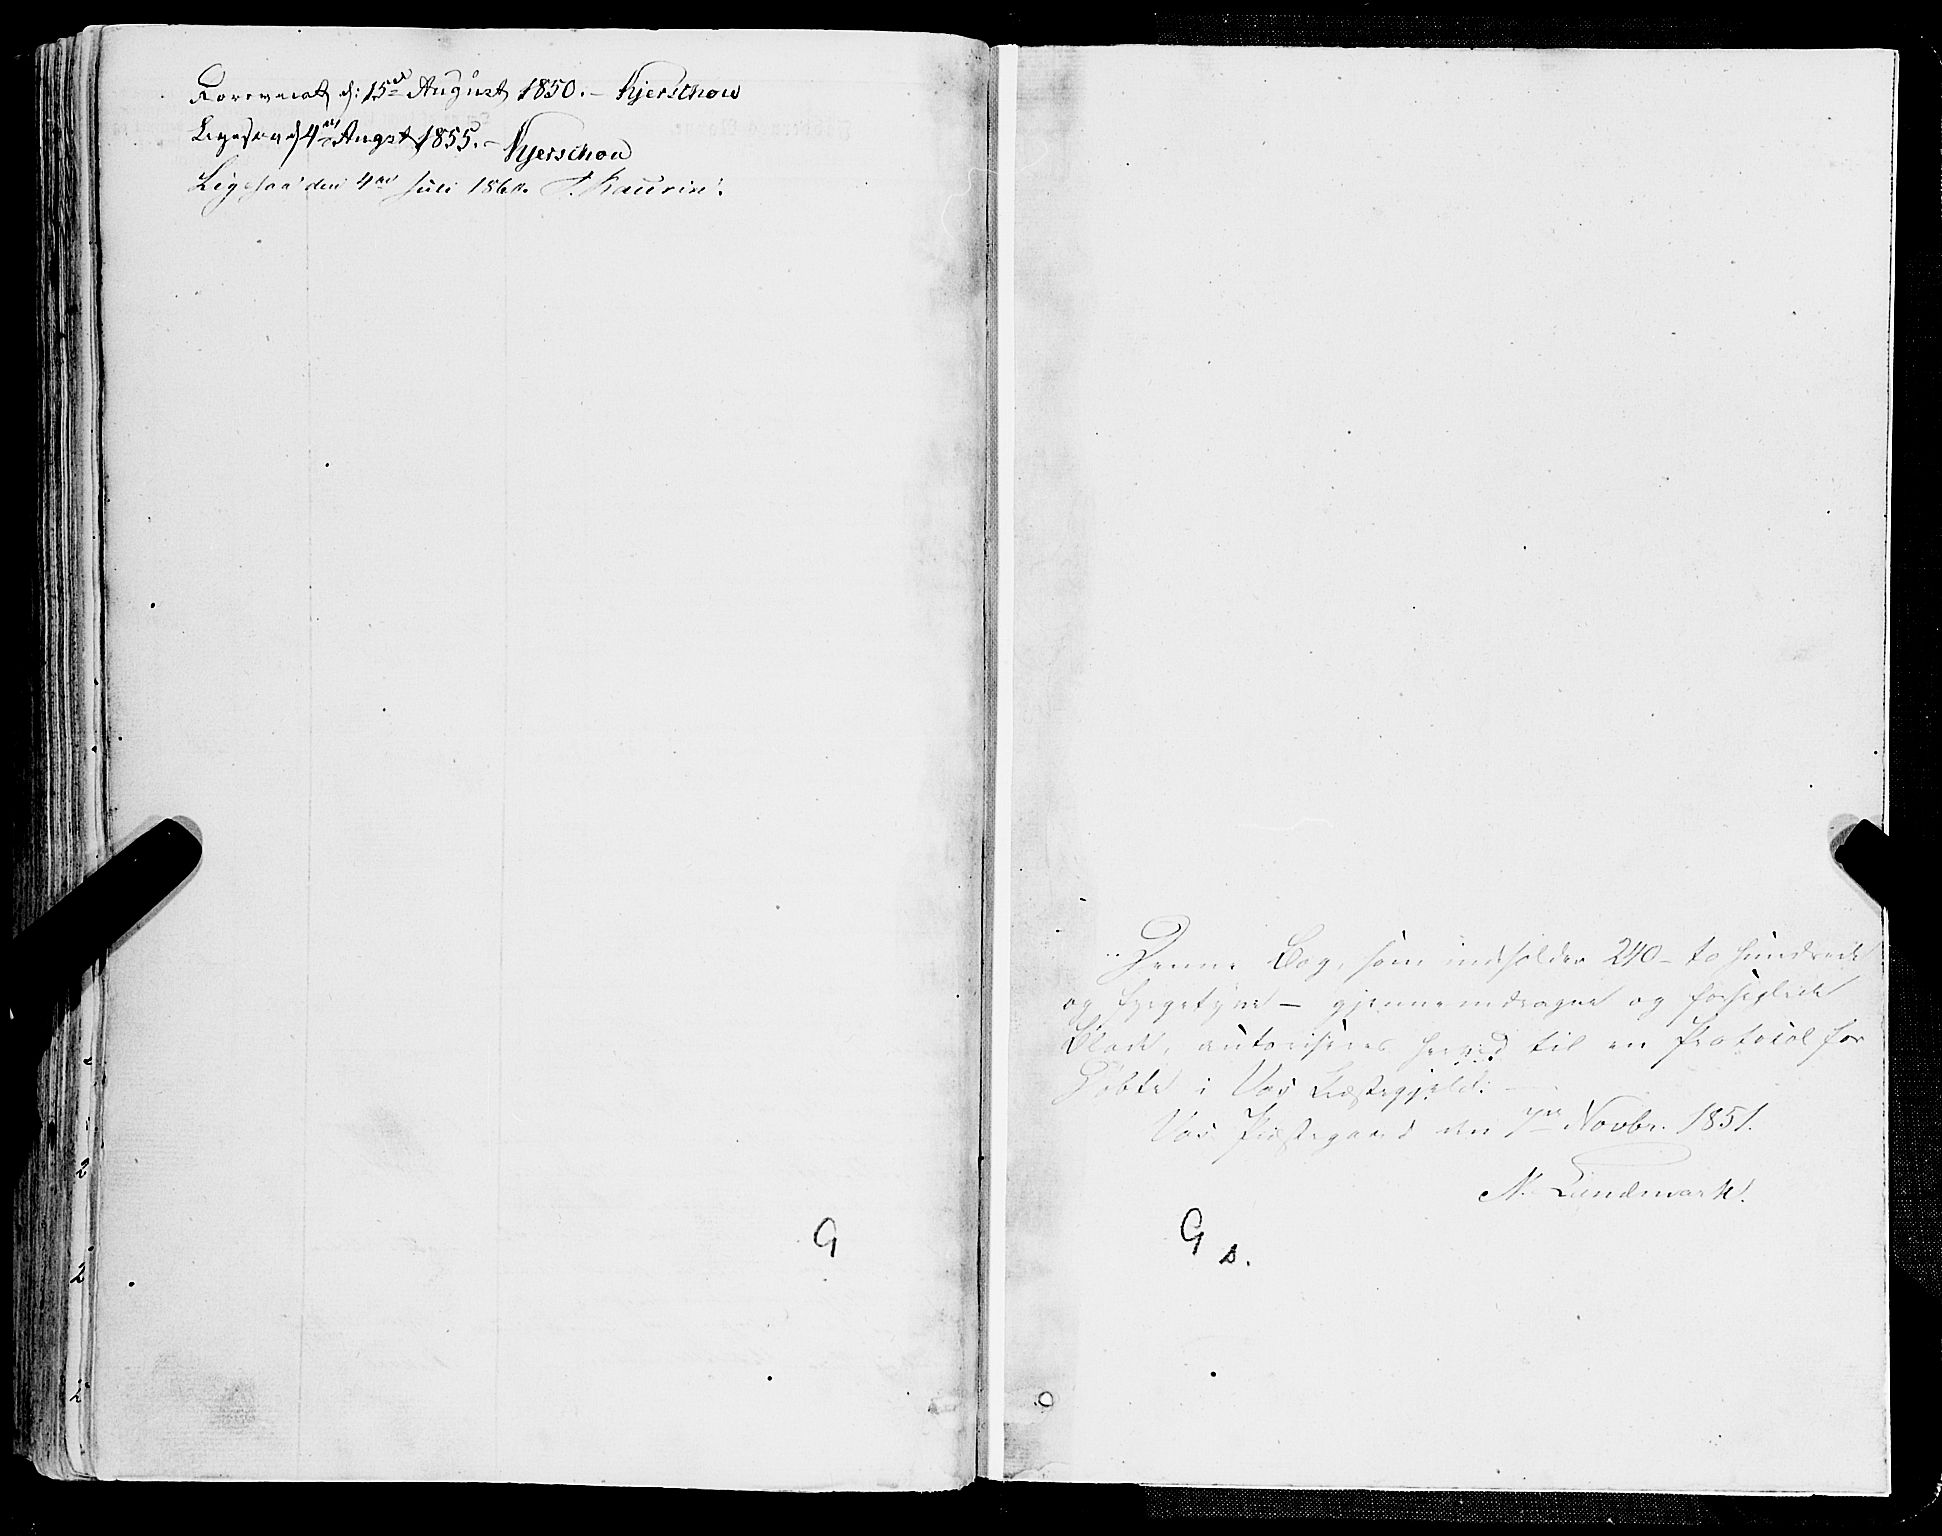 Forevaat d: 15de August 1850. – Kjerschow
Ligesaa d 4de Augst 1855. – Kjerschow
Ligesaa den 4de Juli 1860. J. Kaurin.
G
Denne Bog, som indholder 240 – to hundrede
og fyrgetyve – gjennemdragne og forseglede
Blade, autoriseres herved til en Protocol for
Døbte i Vos Præstegjeld. –
Vos Præstegaard den 7de Novbr. 1851.
N. Lundmark.
G s.
2
2
2